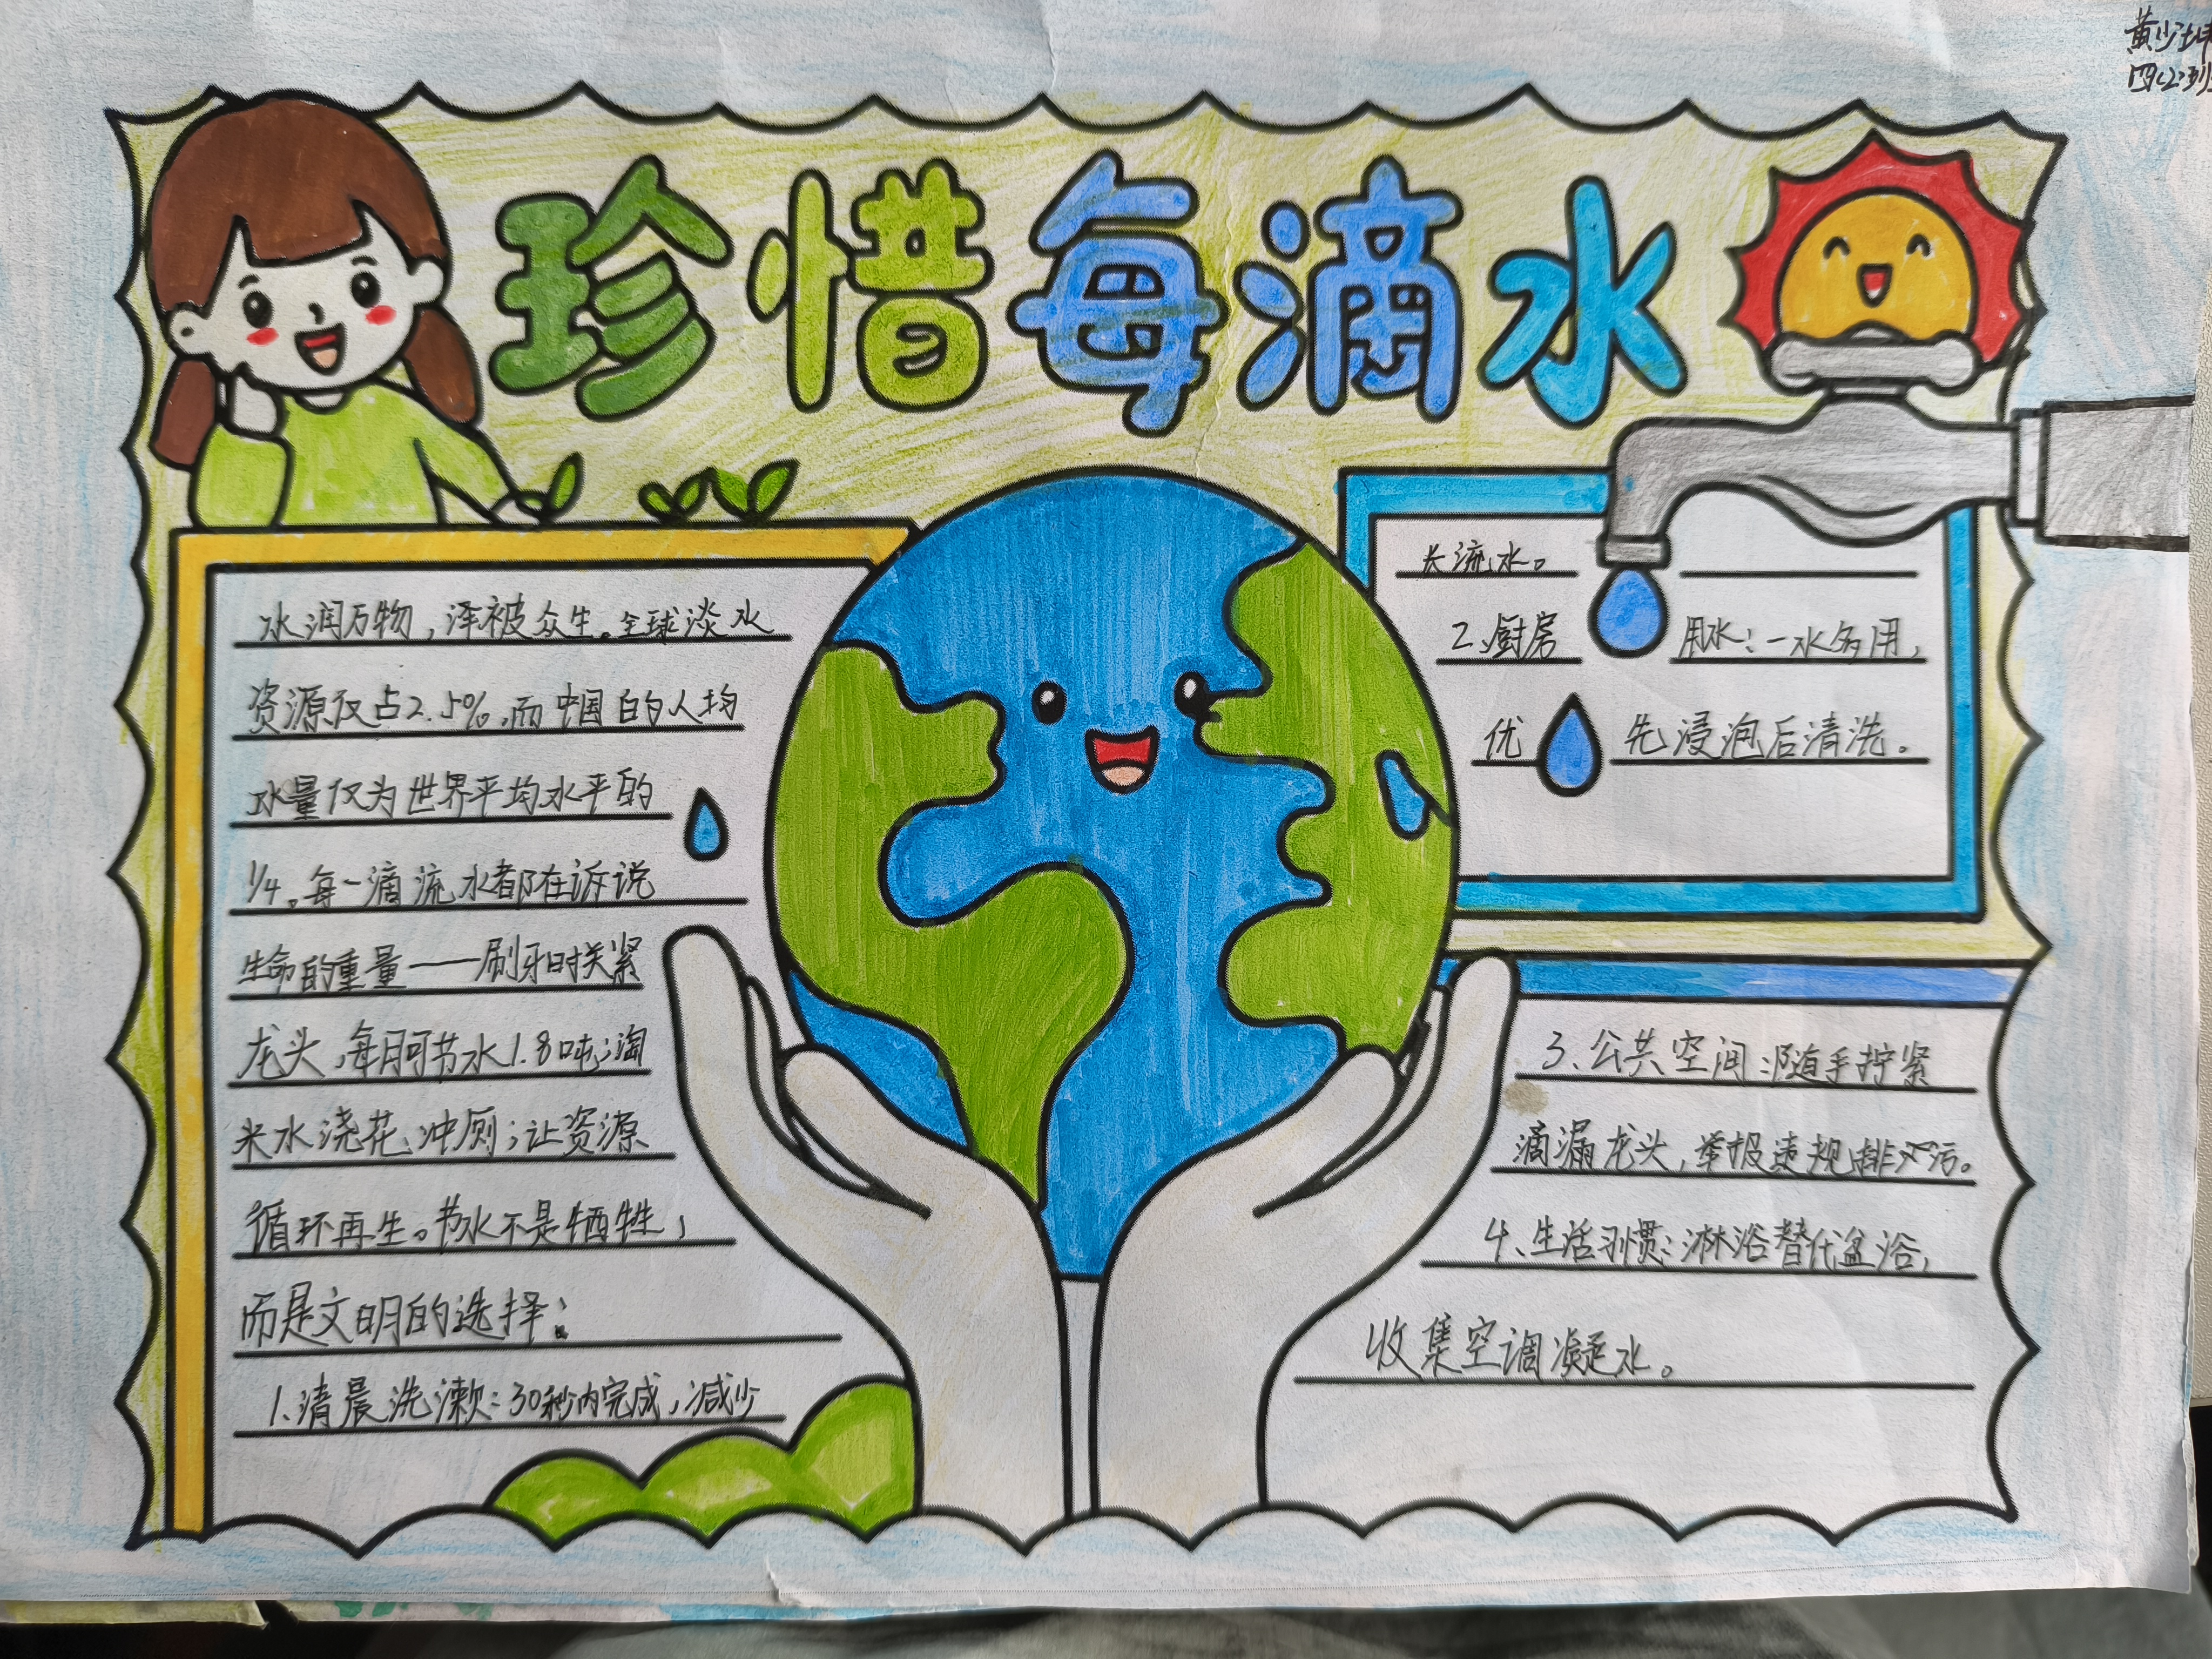 黄少坤
四(2)班
珍惜每滴水
水润万物，泽被众生。全球淡水
资源仅占2.5%，而中国的人均
水量仅为世界平均水平的
1/4。每一滴流水都在诉说
生命的重量——刷牙时关紧
龙头，每月可节水1.8吨；淘
米水浇花、冲厕；让资源
循环再生。节水不是牺牲，
而是文明的选择：
1、清晨洗漱：30秒内完成，减少
长流水。
2、厨房用水：一水多用，
优先浸泡后清洗。
3、公共空间：随手拧紧
滴漏龙头，举报违规排污。
4、生活习惯：淋浴替代盆浴，
收集空调凝水。